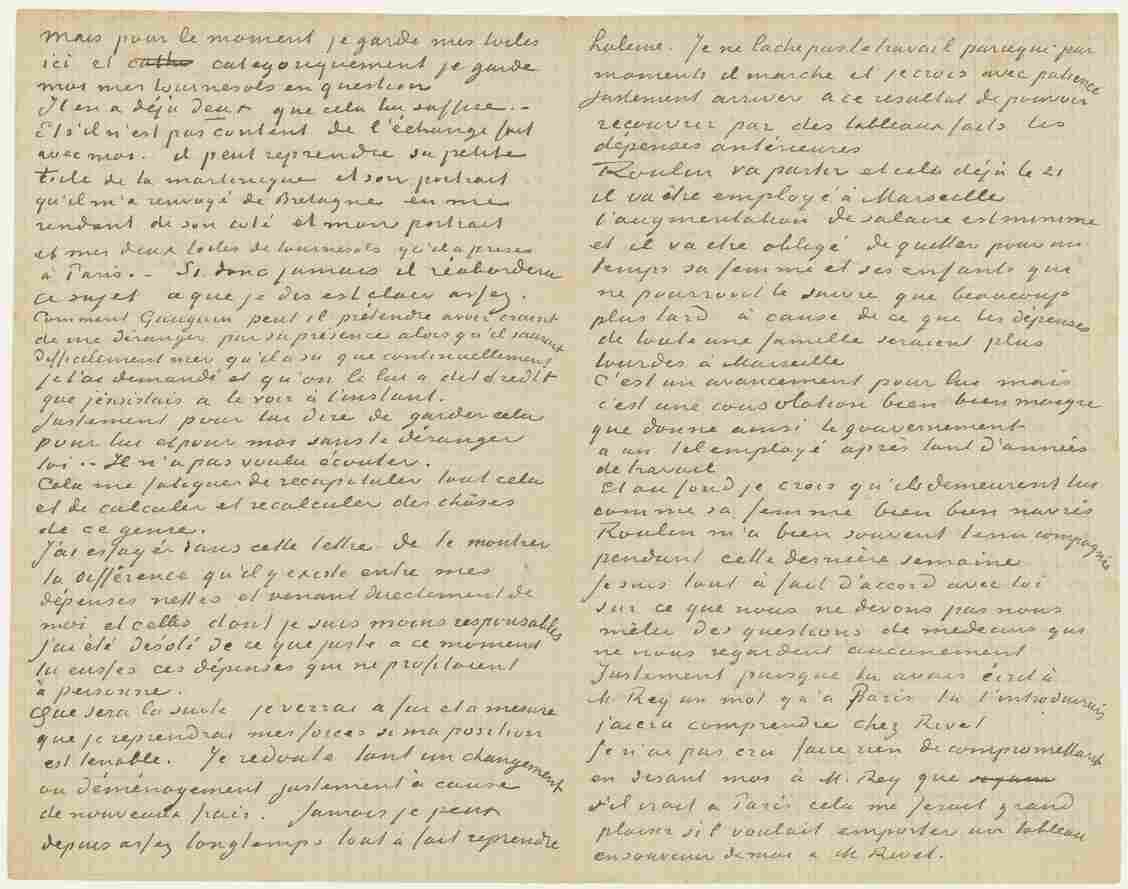 mais pour le moment je garde mes toiles
ici et catho categoriquement je garde
moi mes tournesols en question
Il en a déjà deux que cela lui suffise. –
Et s'il n'est pas content de l'échange fait
avec moi. il peut reprendre sa petite
toile de la martinique et son portrait
qu'il m'a envoyé de Bretagne en me
rendant de son coté et mon portrait
et mes deux toiles de tournesols qu'il a prises
à Paris. – Si donc jamais il réabordera
ce sujet ce que je dis est clair assez.
Comment Gauguin peut il prétendre avoir craint
de me déranger par sa présence alors qu'il saurait
difficilement nier qu'il a su que continuellement
je l'ai demandé et qu'on le lui a dit et redit
que j'insistais a le voir à l'instant.
Justement pour lui dire de garder cela
pour lui et pour moi sans te déranger
toi. – Il n'a pas voulu écouter.
Cela me fatigue de recapituler tout cela
et de calculer et recalculer des chôses
de ce genre.
J'ai essayé dans cette lettre de te montrer
la différence qu'il y existe entre mes
dépenses nettes et venant directement de
moi et celles dont je suis moins responsable
j'ai été désolé de ce que juste a ce moment
tu eusses ces dépenses qui ne profitaient
à personne.
Que sera la suite je verrai a fur et a mesure
que je reprendrai mes forces si ma position
est tenable. Je redoute tant un changement
ou déménagement justement à cause
de nouveaux frais. Jamais je peux
depuis assez longtemps tout a fait reprendre
haleine. Je ne lache pas le travail parceque par
moments il marche et je crois avec patience
justement arriver a ce resultat de pouvoir
recouvrer par des tableaux faits les
dépenses antérieures
Roulin va partir et cela déjà le 21
il va être employé à Marseille
l'augmentation de salaire est minime
et il va être obligé de quitter pour un
temps sa femme et ses enfants qui
ne pourront le suivre que beaucoup
plus tard à cause de ce que les dépenses
de toute une famille seraient plus
lourdes à Marseille
C'est un avancement pour lui mais
c'est une consolation bien bien maigre
que donne ainsi le gouvernement
a un tel employé après tant d'années
de travail
Et au fond je crois qu'ils demeurent lui
comme sa femme bien bien navrés
Roulin m'a bien souvent tenu compagnie
pendant cette dernière semaine
Je suis tout à fait d'accord avec toi
sur ce que nous ne devons pas nous
mêler des questions de medecins qui
ne nous regardent aucunement
Justement puisque tu avais écrit à
M. Rey un mot qu'à Paris tu l'introduirais
j'ai cru comprendre chez Rivet
Je n'ai pas cru faire rien de compromettant
en disant moi à M. Rey que
s'il irait a Paris cela me ferait grand
plaisir s'il voulait emporter un tableau
en souvenir de moi a M Rivet.